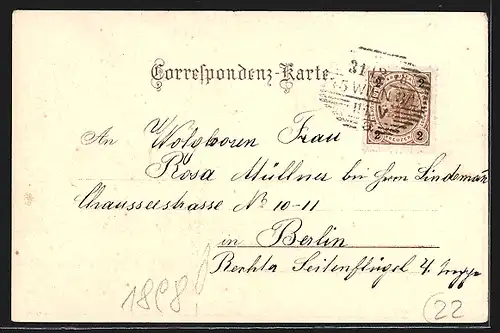 Correspondenz-Karte
31 12
WIEN
2 2
An Wolgboren Frau
Rosa Müllner bei Herrn Lindeman
Chausseestrasse No 10-11
in Berlin
Rechter Seitenflügel 4. trepp
1898
22